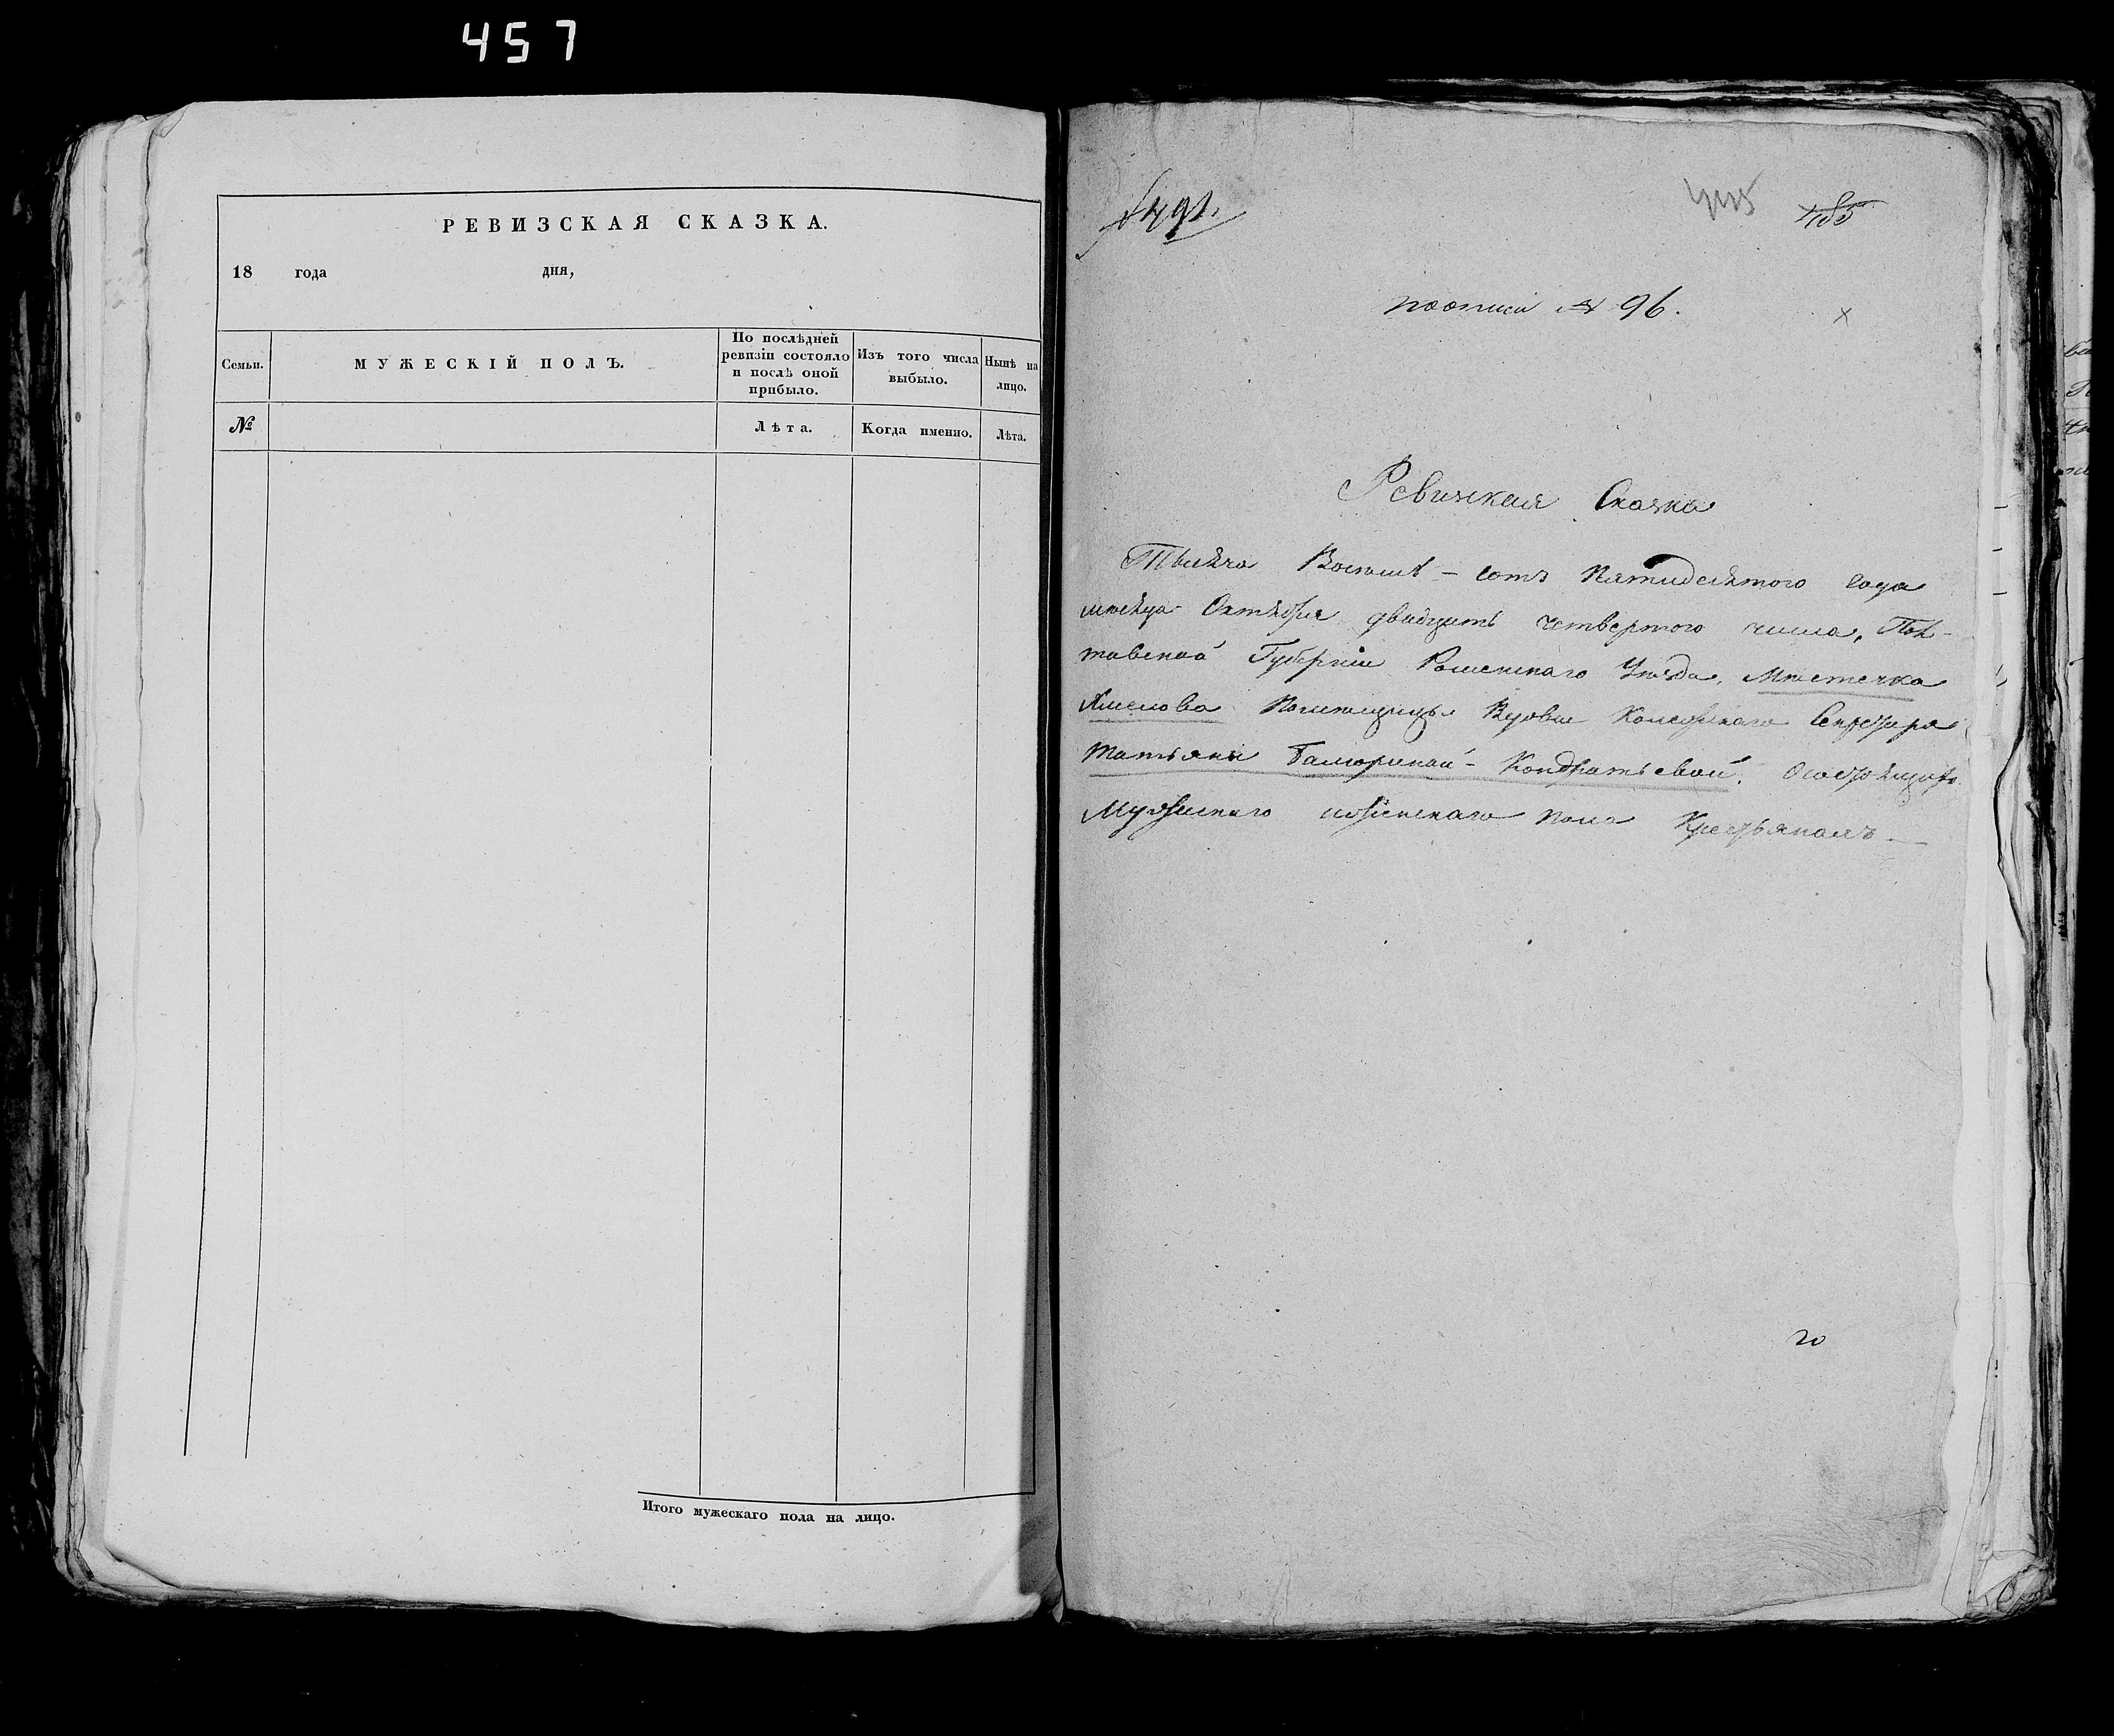 457
РЕВИЗСКАЯ СКАЗКА.
18 года дня,
Семьи.
МУЖЕСКІЙ ПОЛЪ.
По послѣдней
ревизіи состояло
и послѣ оной
прибыло.
Изъ того числа
выбыло.
Нынѣ на
лицо.
№
Лѣта.
Когда именно.
Лѣта.
Итого мужескаго пола на лицо.
485
по описи № 96.
Ревизкая Сказка
Тысяча Восемь-сотъ Пятидесятого года
месяца Октября двадцать четвертого числа, Пол-
тавской Губерніи Роменскаго Уезда, Местечка
Смелова Помещицы Вдовы Колежскаго Секретаря
Татьяны Кондратьевой. О состоящихъ
Мужескаго и женскаго пола Крестьянахъ
20